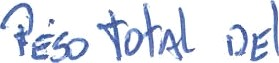 Peso total del